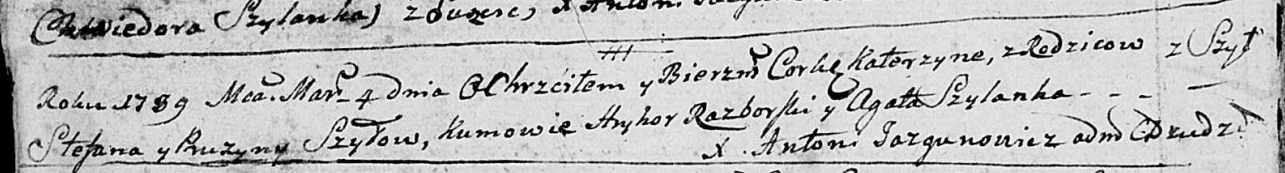 Chwiedora Szylanka) z X Anton.
Roku 1789 Mca. Mar. 4 dnia Ochrzciłem y Bierzm Corkę Katerzyne, z Rodzicow z Szył
Stefana y Pruzyny Szyłow, Kumowie Hryhor Razborski y Agata Szylanka - - - -
X. Anton. Jazgunowicz adm